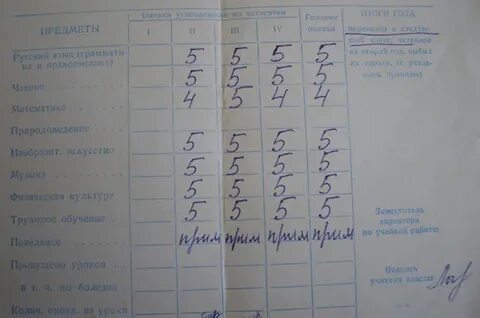 ПРЕДМЕТЫ
Оценки успеваемости по четвертям
I II III IV
Годовые
оценки
ИТОГИ ГОДА
Русский язык (граммати-
ка и правописание) 5 5 5 5
Чтение 5 5 5 5
Математика 4 5 4 4
Природоведение
Изобразит. искусство 5 5 5 5
Музыка 5 5 5 5
Физическая культура 5 5 5 5
Трудовое обучение 5 5 5 5
Поведение прим прим прим прим
Пропущено уроков
в т. ч. по болезни
Колич. опозд. на уроки
переведен в следую-
щий класс, оставлен
на второй год, выбыл
из школы, (с указа-
нием причины)
Заместитель
директора
по учебной работе
Подпись
учителя класса